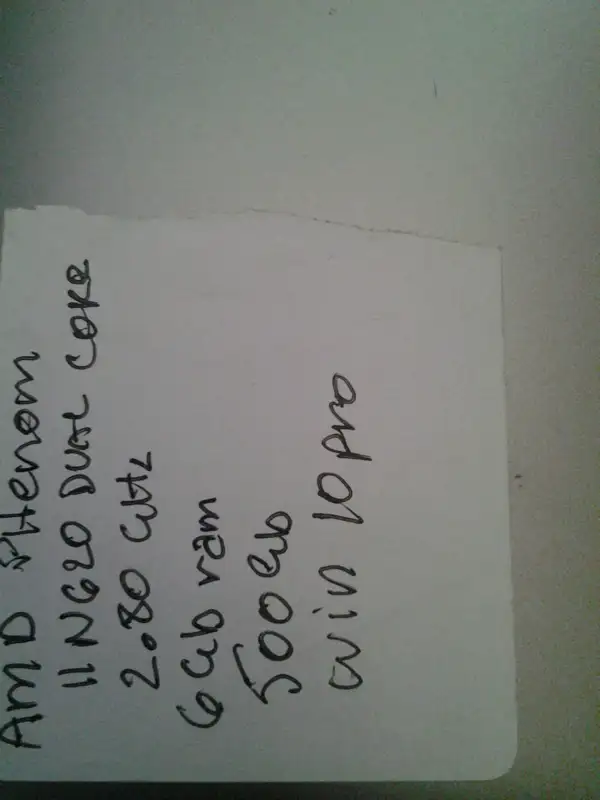 AMD PHenom
II N620 DUAL CORE
2.80 GHz
6 Gb ram
500 Gb
win 10 pro